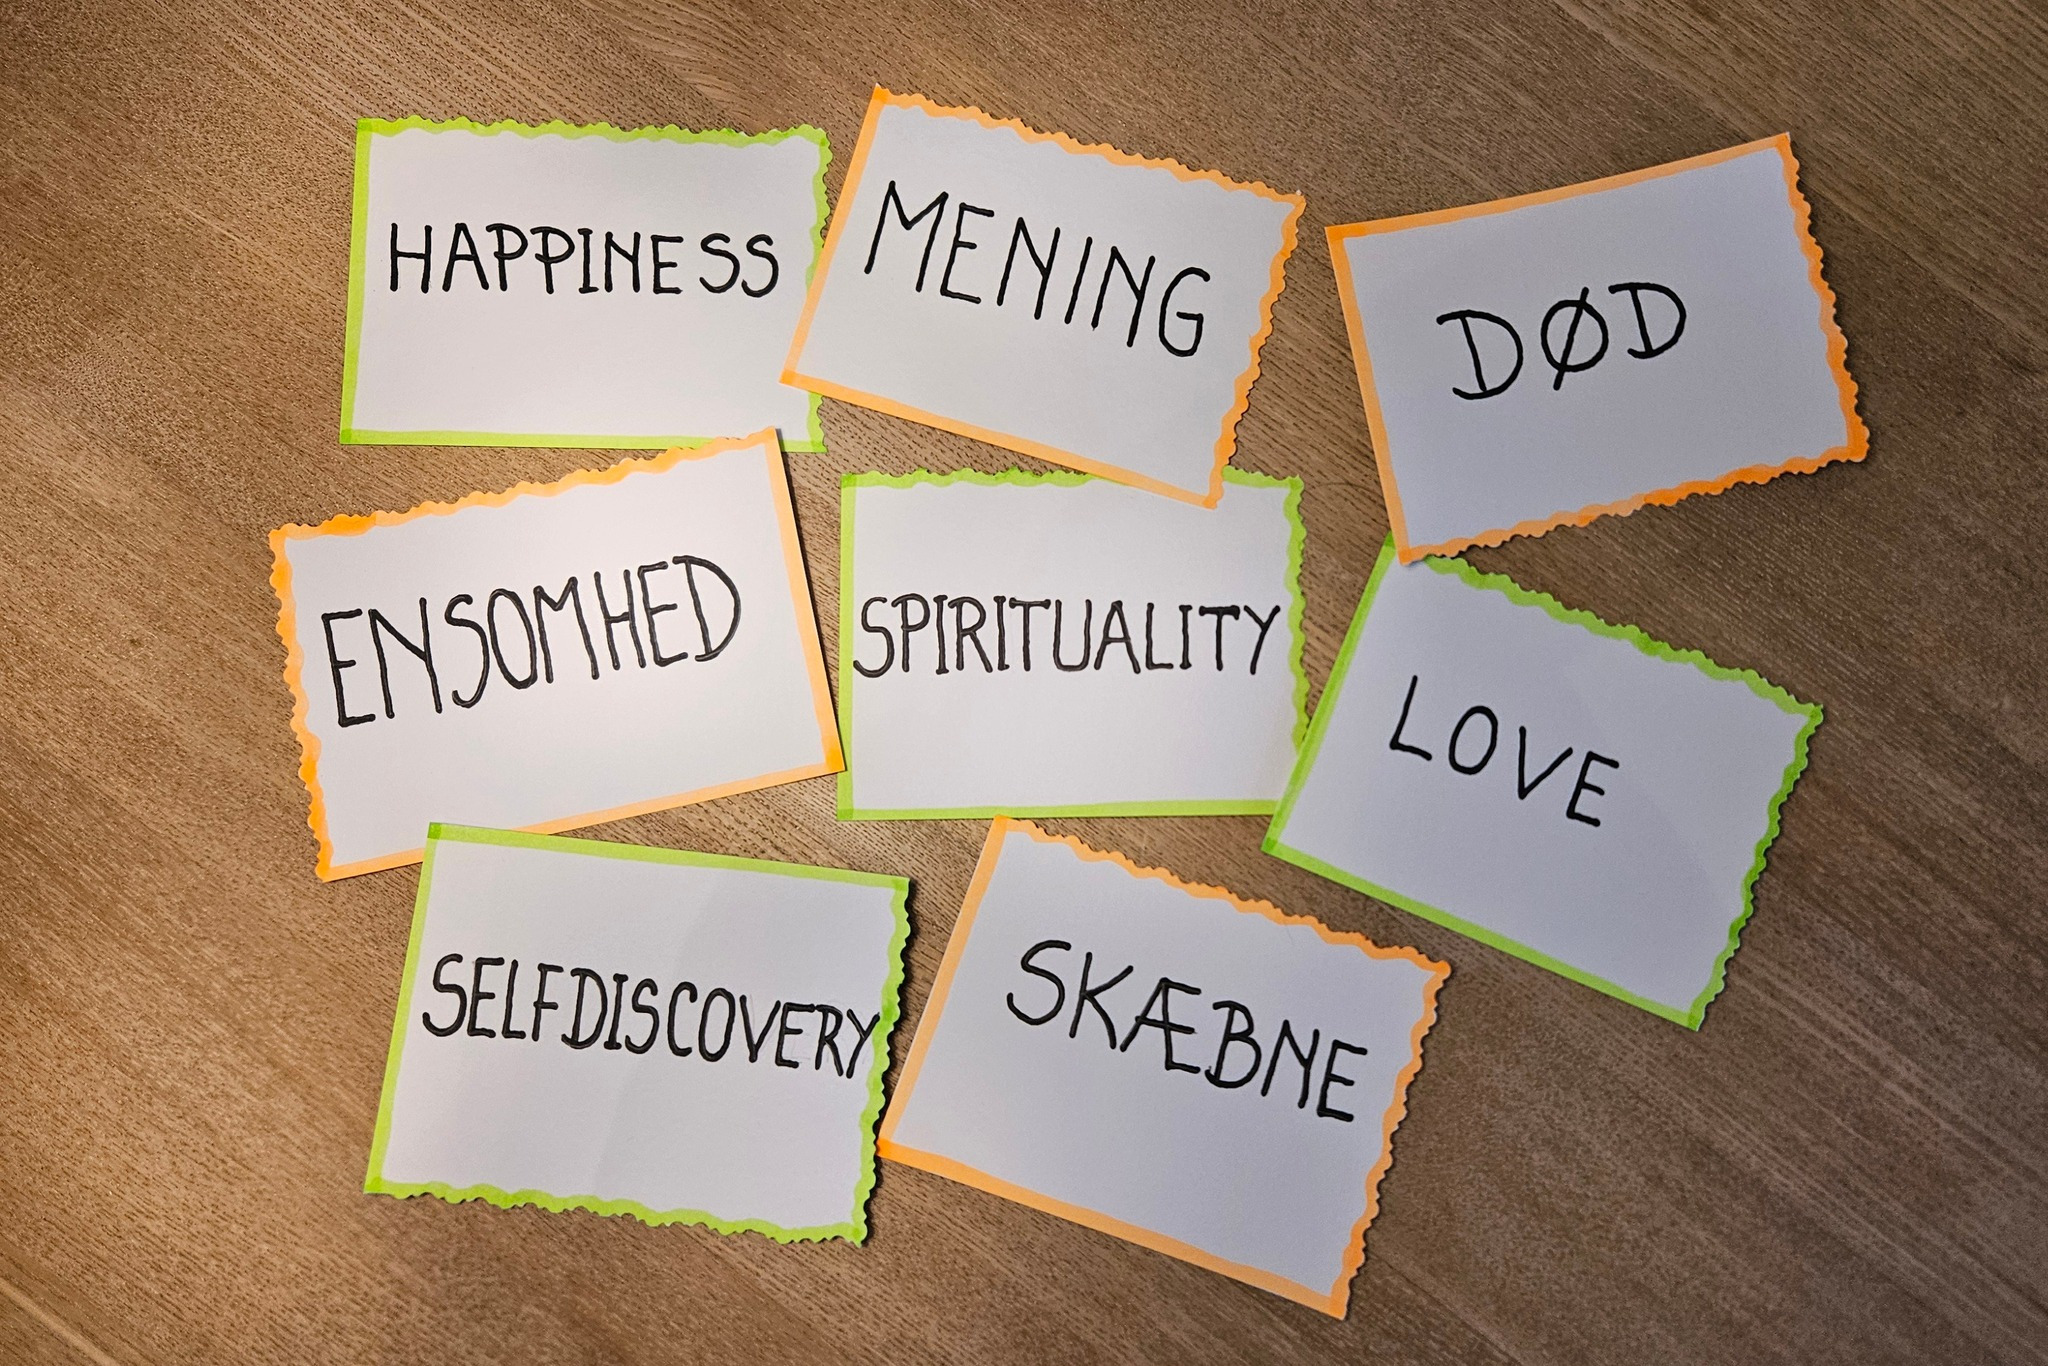 HAPPINESS
MENING
DØD
ENSOMHED
SPIRITUALITY
LOVE
SELFDISCOVERY
SKÆBNE